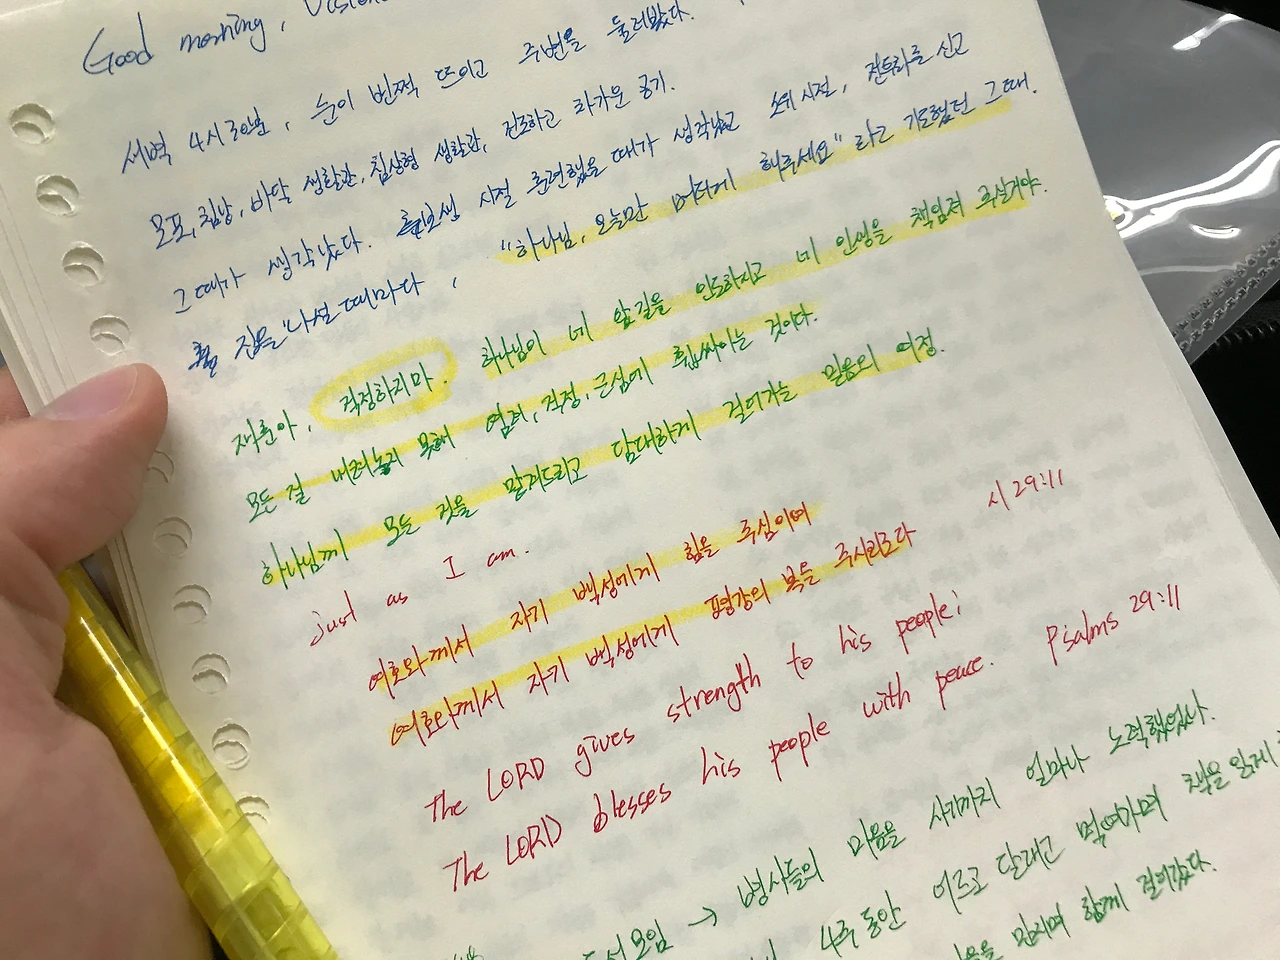 Good morning,
새벽 4시 30분, 눈이 번쩍 뜨이고 주변을 둘러봤다.
모포, 침낭, 바닥 생활관, 침상형 생활관, 건조하고 차가운 공기.
그때가 생각났다. 훈련했을 때가 생각났고 소위 시절, 전투화를 신고
집을 나설 때마다, "하나님, 오늘만 버티게 해주세요" 라고 기도했던 그때.
재훈아, 걱정하지마. 하나님이 네 앞길을 인도하시고 네 인생을 책임져 주실거야.
모든 걸 내려놓지 못해 염려, 걱정, 근심에 휩싸이는 것이다.
하나님께 모든 것을 맡겨드리고 담대하게 걸어가는 믿음의 여정.
just as I am.
여호와께서 자기 백성에게 힘을 주심이여
여호와께서 자기 백성에게 평강의 복을 주시리로다 시 29:11
The LORD gives strength to his people;
The LORD blesses his people with peace. Psalms 29:11
모임 → 병사들의 마음을 사기까지 얼마나 노력했었나.
4주 동안 어르고 달래고 먹여가며 책을 읽게
함께 걸어갔다.